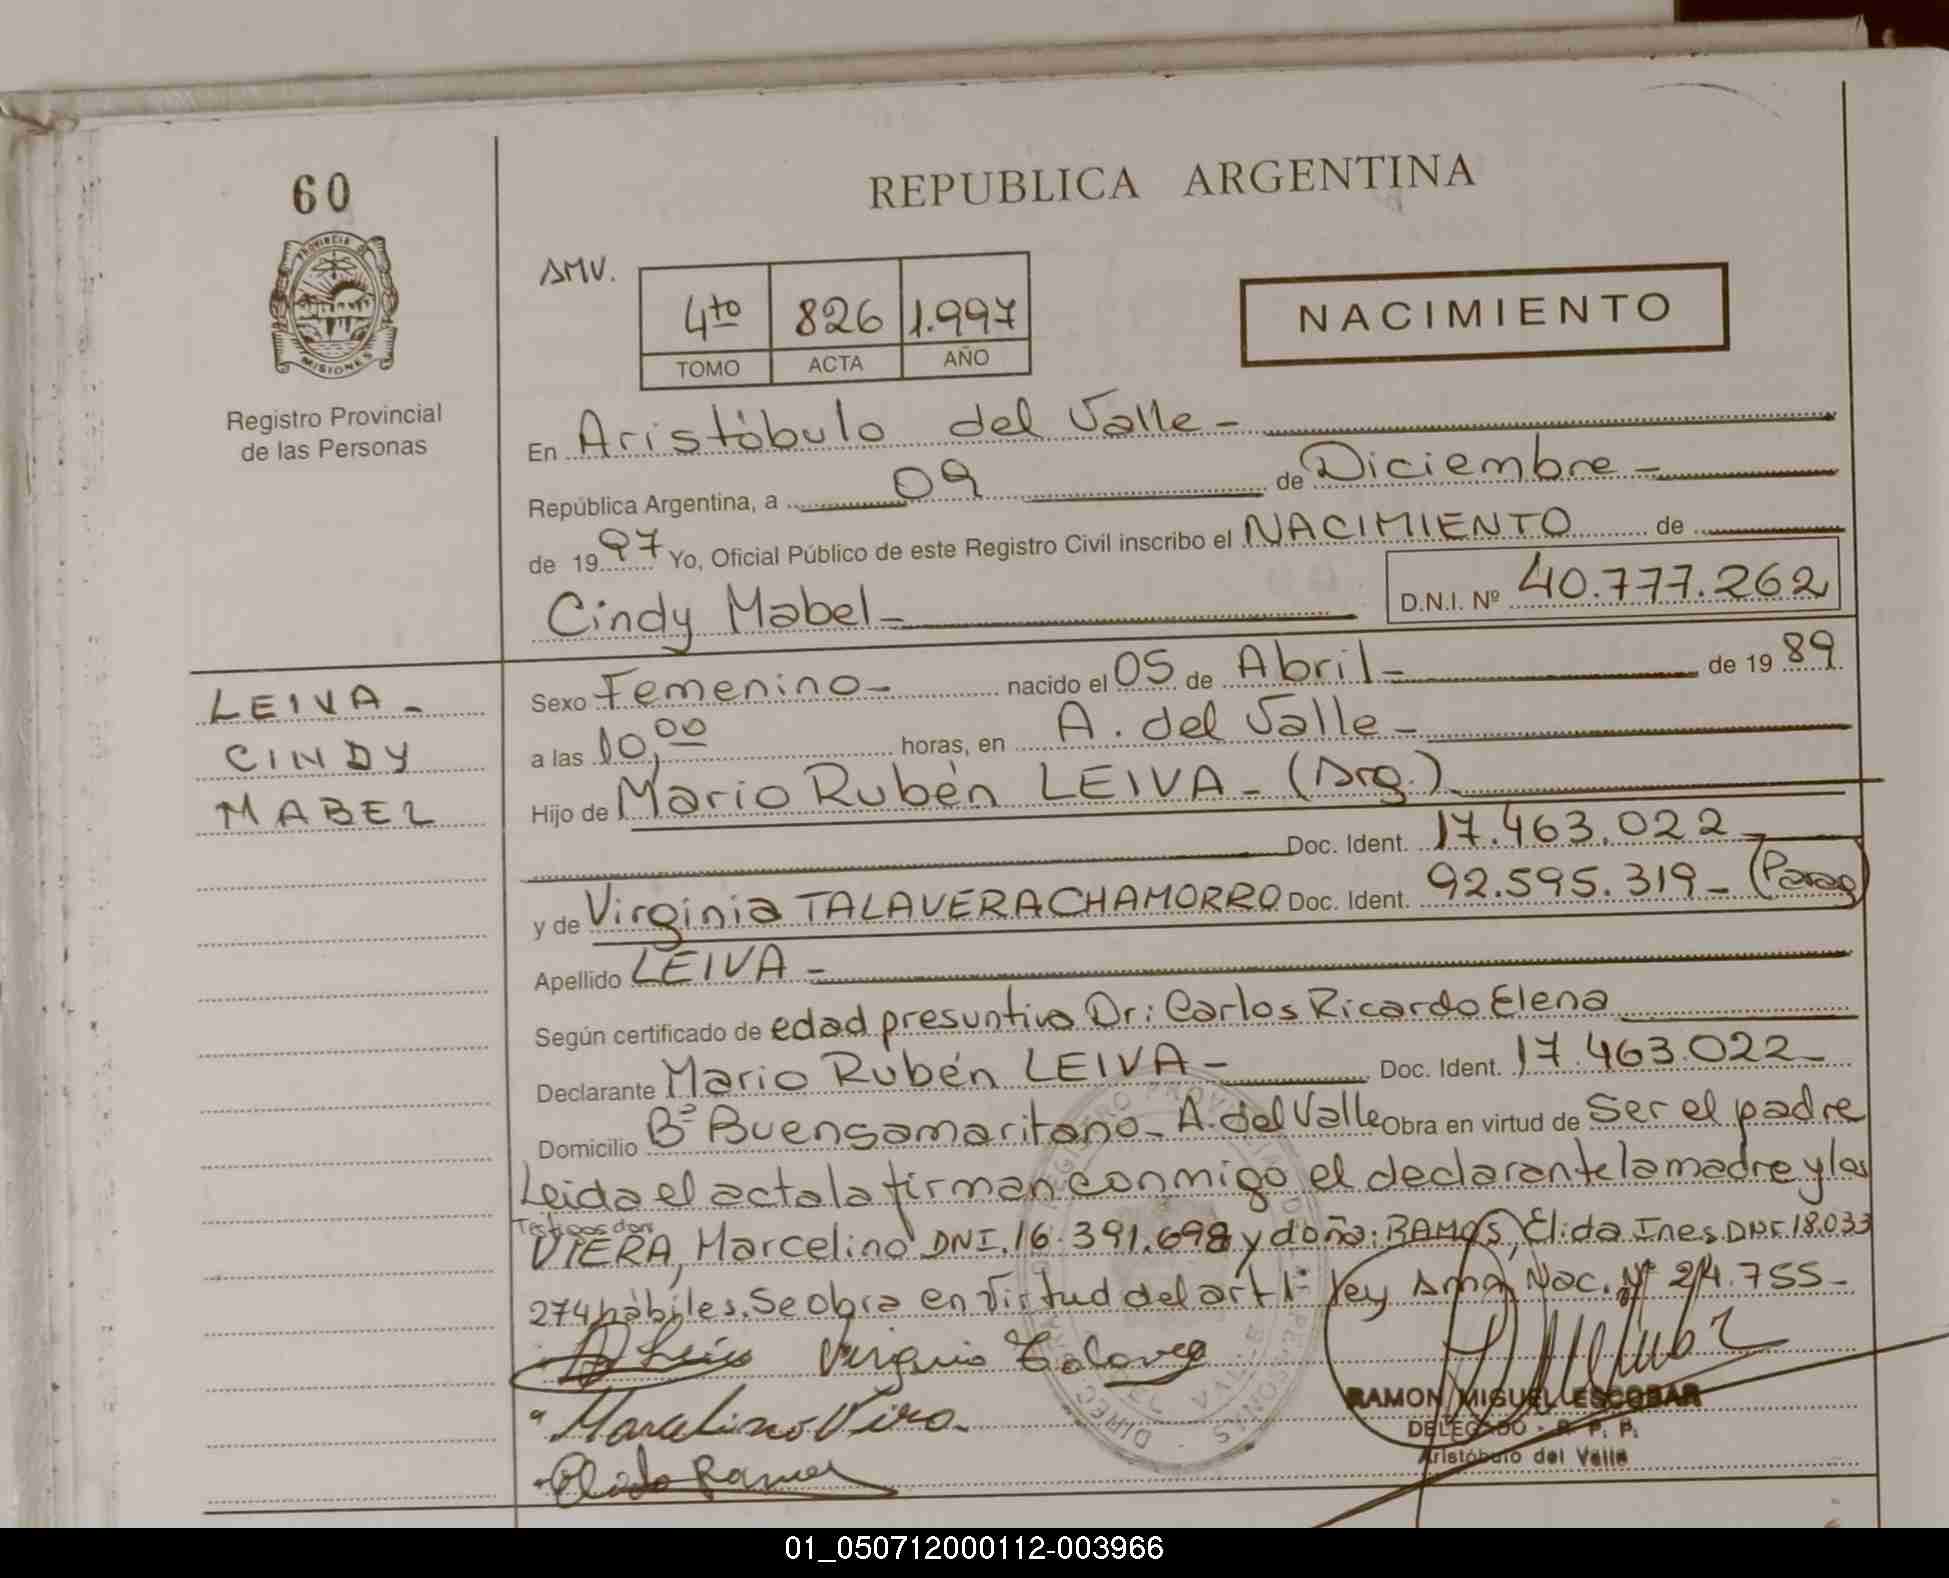 60
REPUBLICA ARGENTINA
PROVINCIA DE
MISIONES
AMV.
4to 826 1.997
TOMO ACTA AÑO
NACIMIENTO
Registro Provincial
de las Personas
En Aristóbulo del Valle -
República Argentina, a 09 de Diciembre -
de 1997 Yo, Oficial Público de este Registro Civil inscribo el NACIMIENTO de
Cindy Mabel - D.N.I. Nº 40.777.262
LEIVA -
CINDY
MABEL
Sexo Femenino - nacido el 05 de Abril - de 1989
a las 10,00 horas, en A. del Valle -
Hijo de Mario Rubén LEIVA - (Arg.)
Doc. Ident. 17.463.022 -
y de Virginia TALAVERA CHAMORRO Doc. Ident. 92.595.319 - (Parag)
Apellido LEIVA -
Según certificado de edad presuntiva Dr: Carlos Ricardo Elena
Declarante Mario Rubén LEIVA - Doc. Ident. 17.463.022 -
Domicilio Bº Buensamaritano - A. del Valle Obra en virtud de Ser el padre
Leida el acta la firman conmigo el declarante la madre y los
Testigos don
VIERA, Marcelino DNI. 16.391.698 y doña: RAMOS, Elida Ines DNI. 18.033
274 hábiles. Se obra en virtud del art 1º ley Nac. Nº 24.755 -
Virginia Talavera
Marcelino Viera
Elida Ramos
RAMON MIGUEL ESCOBAR
DELEGADO - R. P. P.
Aristóbulo del Valle
01_050712000112-003966